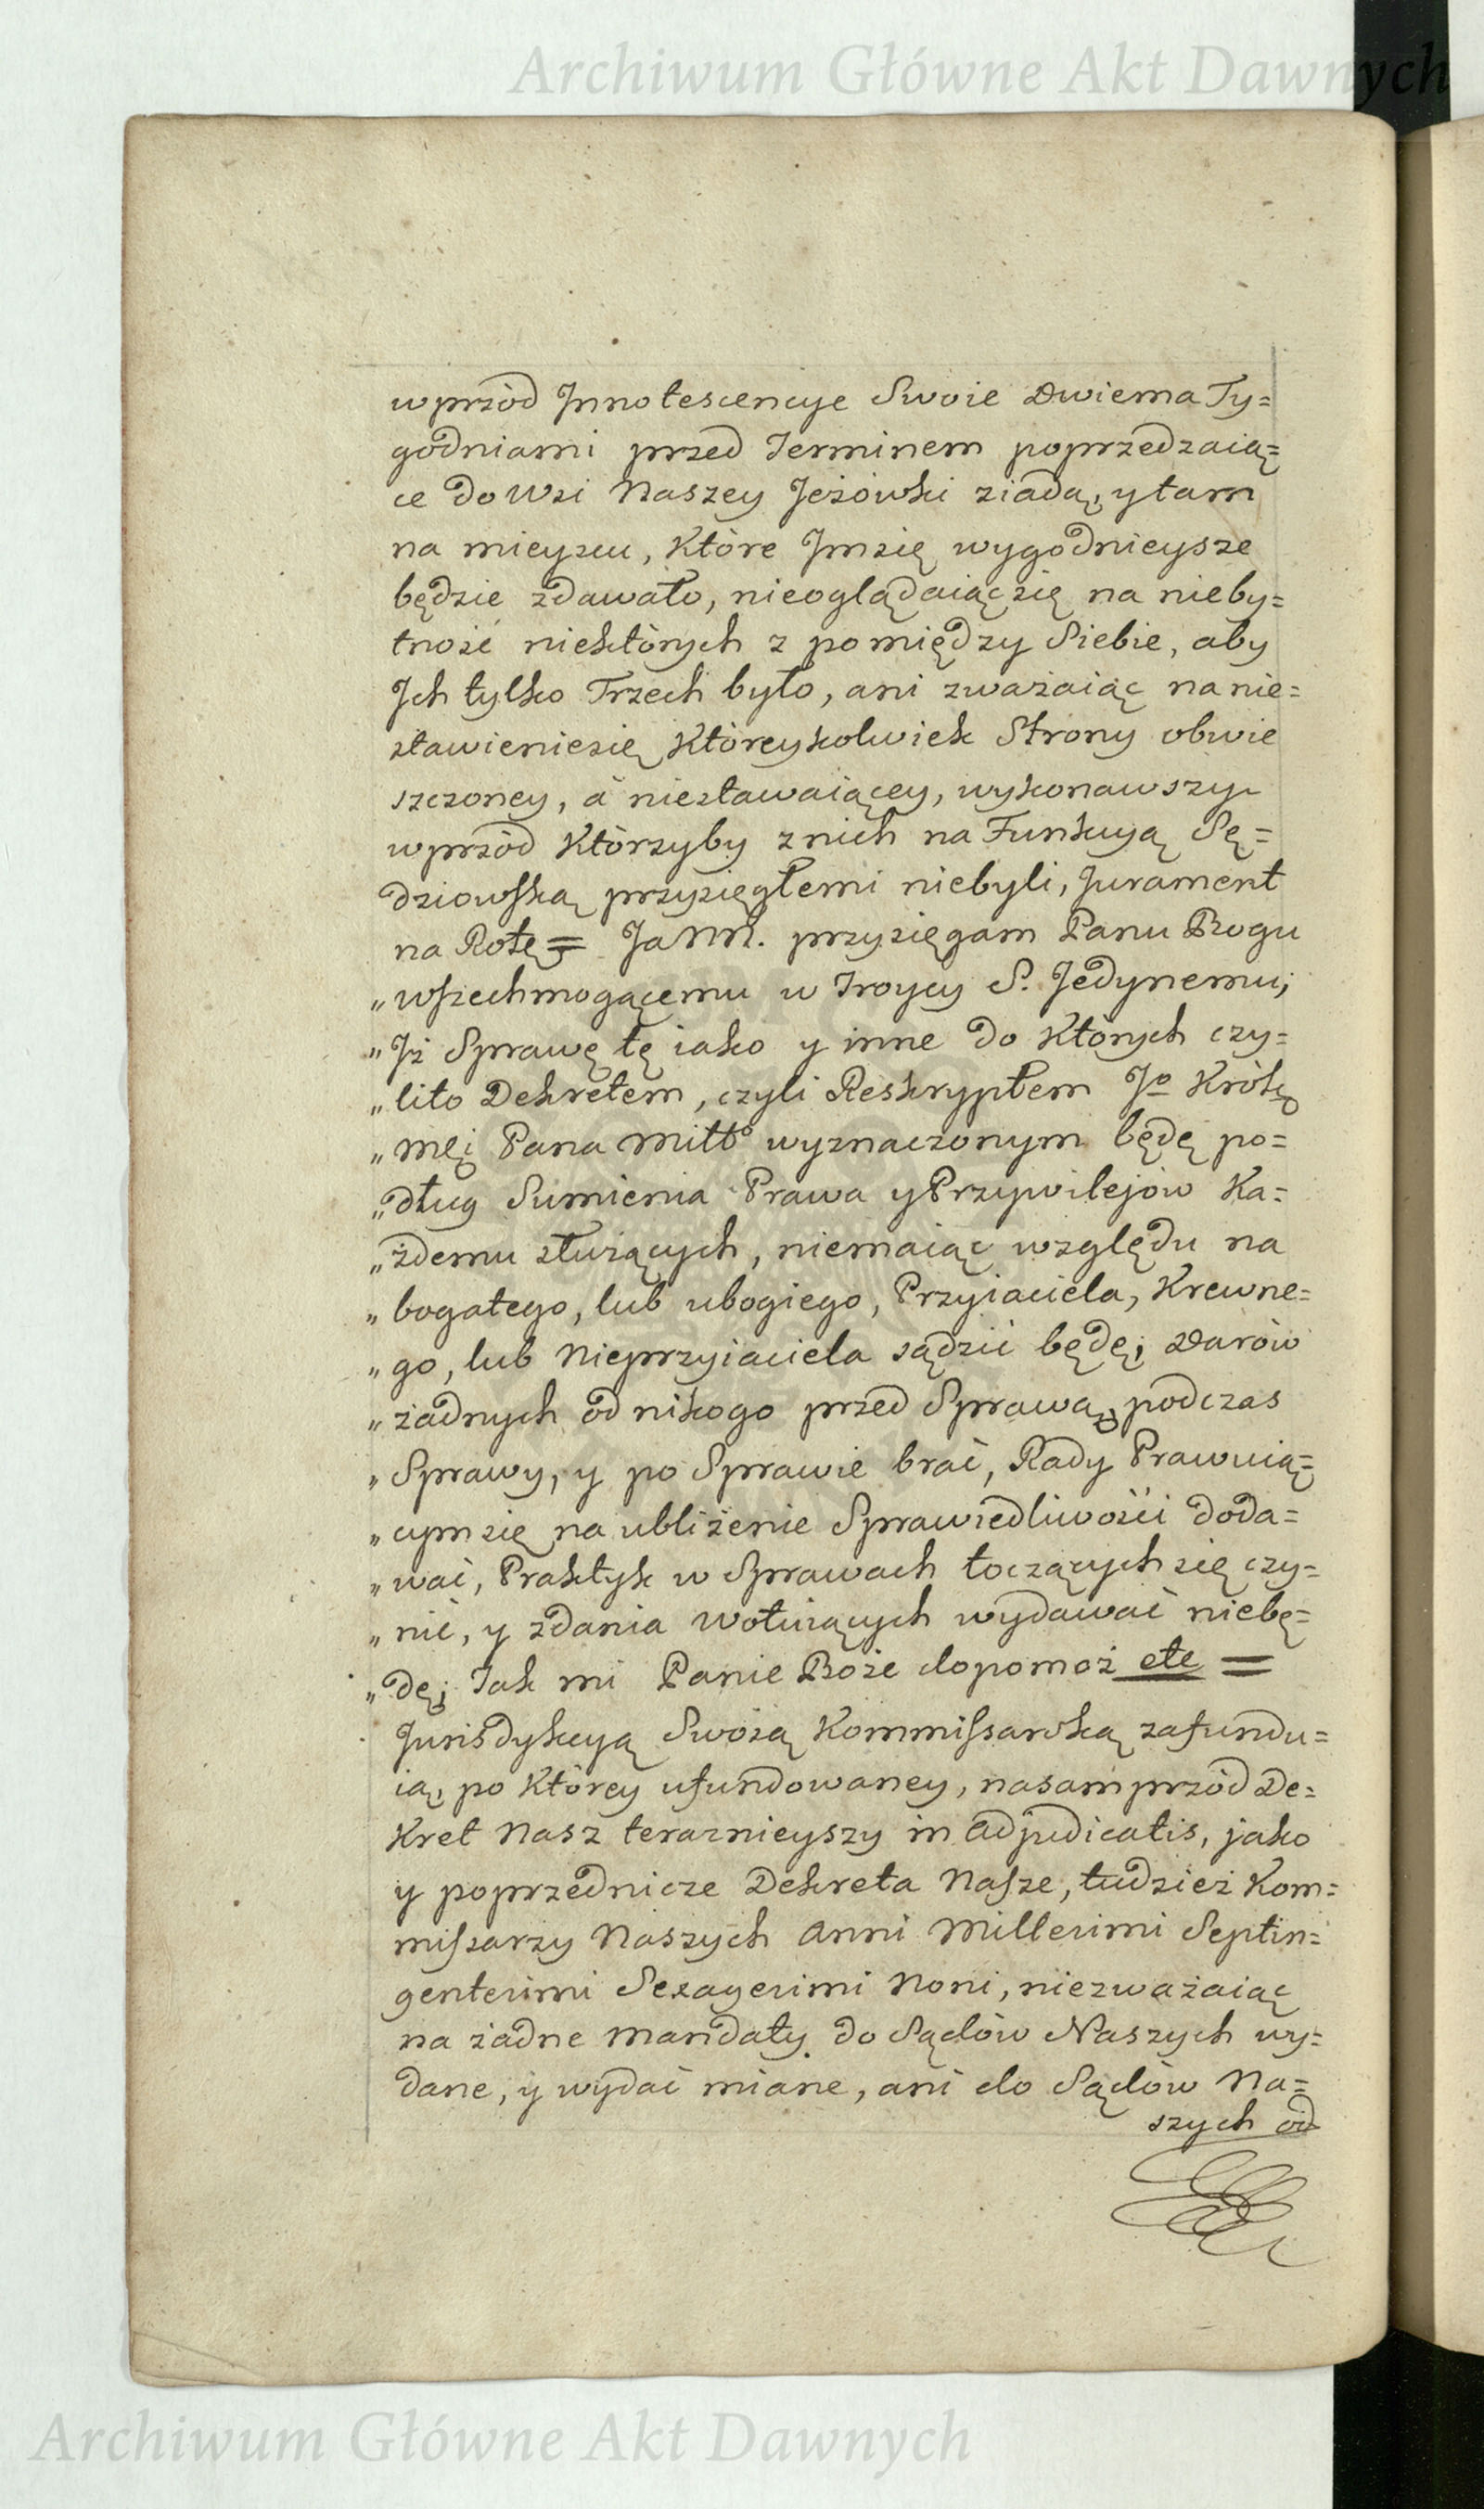 Archiwum Główne Akt Dawnych
wprzód Jnnotescencye Swoie Dwiema Ty=
godniami przed Terminem poprzedzaią=
ce do Wsi Naszey Jeżówki ziadą, y tam
na mieyscu, które Jmsię wygodnieysze
będzie zdawało, nieoglądaiącsię na nieby=
tność niektórych z pomiędzy Siebie, aby
Jch tylko Trzech było, ani zważaiąc na nie=
stawieniesię któreykolwiek Strony obwie
szczoney, á niestawaiącey, wykonawszy
wprzód którzyby z nich na Funkcyą Sę=
dziowską przysięgłemi niebyli, Jurament
na Rotę = Ja NN. przysięgam Panu Bogu
„ wszechmogącemu w Troycy S. Jedynemu,
„ Jż Sprawę tę iako y inne do których czy=
„ lito Dekretem, czyli Reskryptem Jo Królę
„ Mci Pana Miłło wyznaczonym będę po=
„ dług Sumienia Prawa y Przywilejów Ka=
„ żdemu służących, niemaiąc względu na
„ bogatego, lub ubogiego, Przyiaciela, Krewne=
„ go, lub Nieprzyiaciela sądzić będę; Darów
„ żadnych od nikogo przed Sprawą, podczas
„ Sprawy, y po Sprawie brać, Rady Prawuią=
„ cymsię na ubliżenie Sprawiedliwości doda=
„ wać, Praktyk w Sprawach toczących się czy=
„ nić, y zdania wotuiących wydawać niebę=
„ dę; Tak mi Panie Boże dopomoż etc =
Jurisdykcyą Swoią Kommissarską zafundu=
ią, po którey ufundowaney, nasamprzód De=
kret Nasz teraznieyszy in adjudicatis, jako
y poprzednicze Dekreta Nasze, tudzież Kom=
missarzy Naszych Anni Millesimi Septin=
gentesimi Sexagesimi Noni, niezważaiąc
na żadne Mandaty do Sądów Naszych wy=
dane, y wydać miane, ani do Sądów Na=
szych od
Archiwum Główne Akt Dawnych